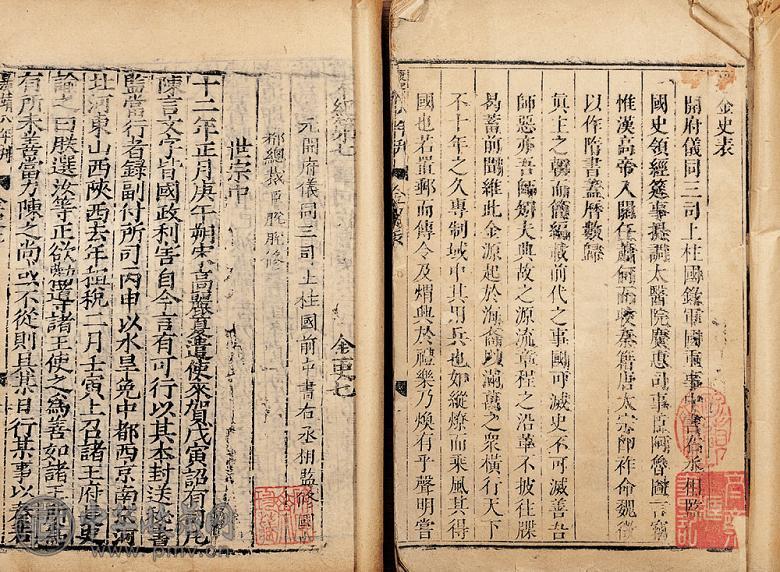 金史表
開府儀同三司上柱國錄軍國重事中書右丞相監
國史領經筵事提調太醫院廣惠司事臣阿魯圖言竊
惟漢高帝入關任蕭何而收秦籍唐太宗即祚命魏徵
以作隋書蓋曆數歸
眞主之馨而簡編載前代之事國可滅史不可滅善吾
師惡亦吾師矧夫典故之源流章程之沿革不披往牒
曷蓄前聞維此金源起於海裔以滿萬之衆橫行天下
不十年之久專制域中其用兵也如縱燎而乘風其得
國也若置郵而傳令及煟興於禮樂乃煥有乎聲明嘗
本紀第七 金史七
元開府儀同三司上柱國前中書右丞相監修國史
都總裁臣脫脫修
世宗中
十二年正月庚午朔宋高麗夏遣使來賀戊寅詔有司凡
陳言文字皆國政利害自今言有可行以其本封送祕書
監當行者錄副付所司丙申以水旱免中都西京南京河
北河東山西陝西去年租稅二月壬寅上召諸王府長史
諭之曰朕選汝等正欲勸導諸王使之爲善如諸王所為
有所未善當力陳之尚或不從則具某日行某事以奏若
嘉靖八年刊